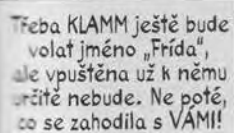 Třeba KLAMM ještě bude
volat jméno „Frída“,
ale vpuštěna už k němu
určitě nebude. Ne poté,
co se zahodila s VÁMI!